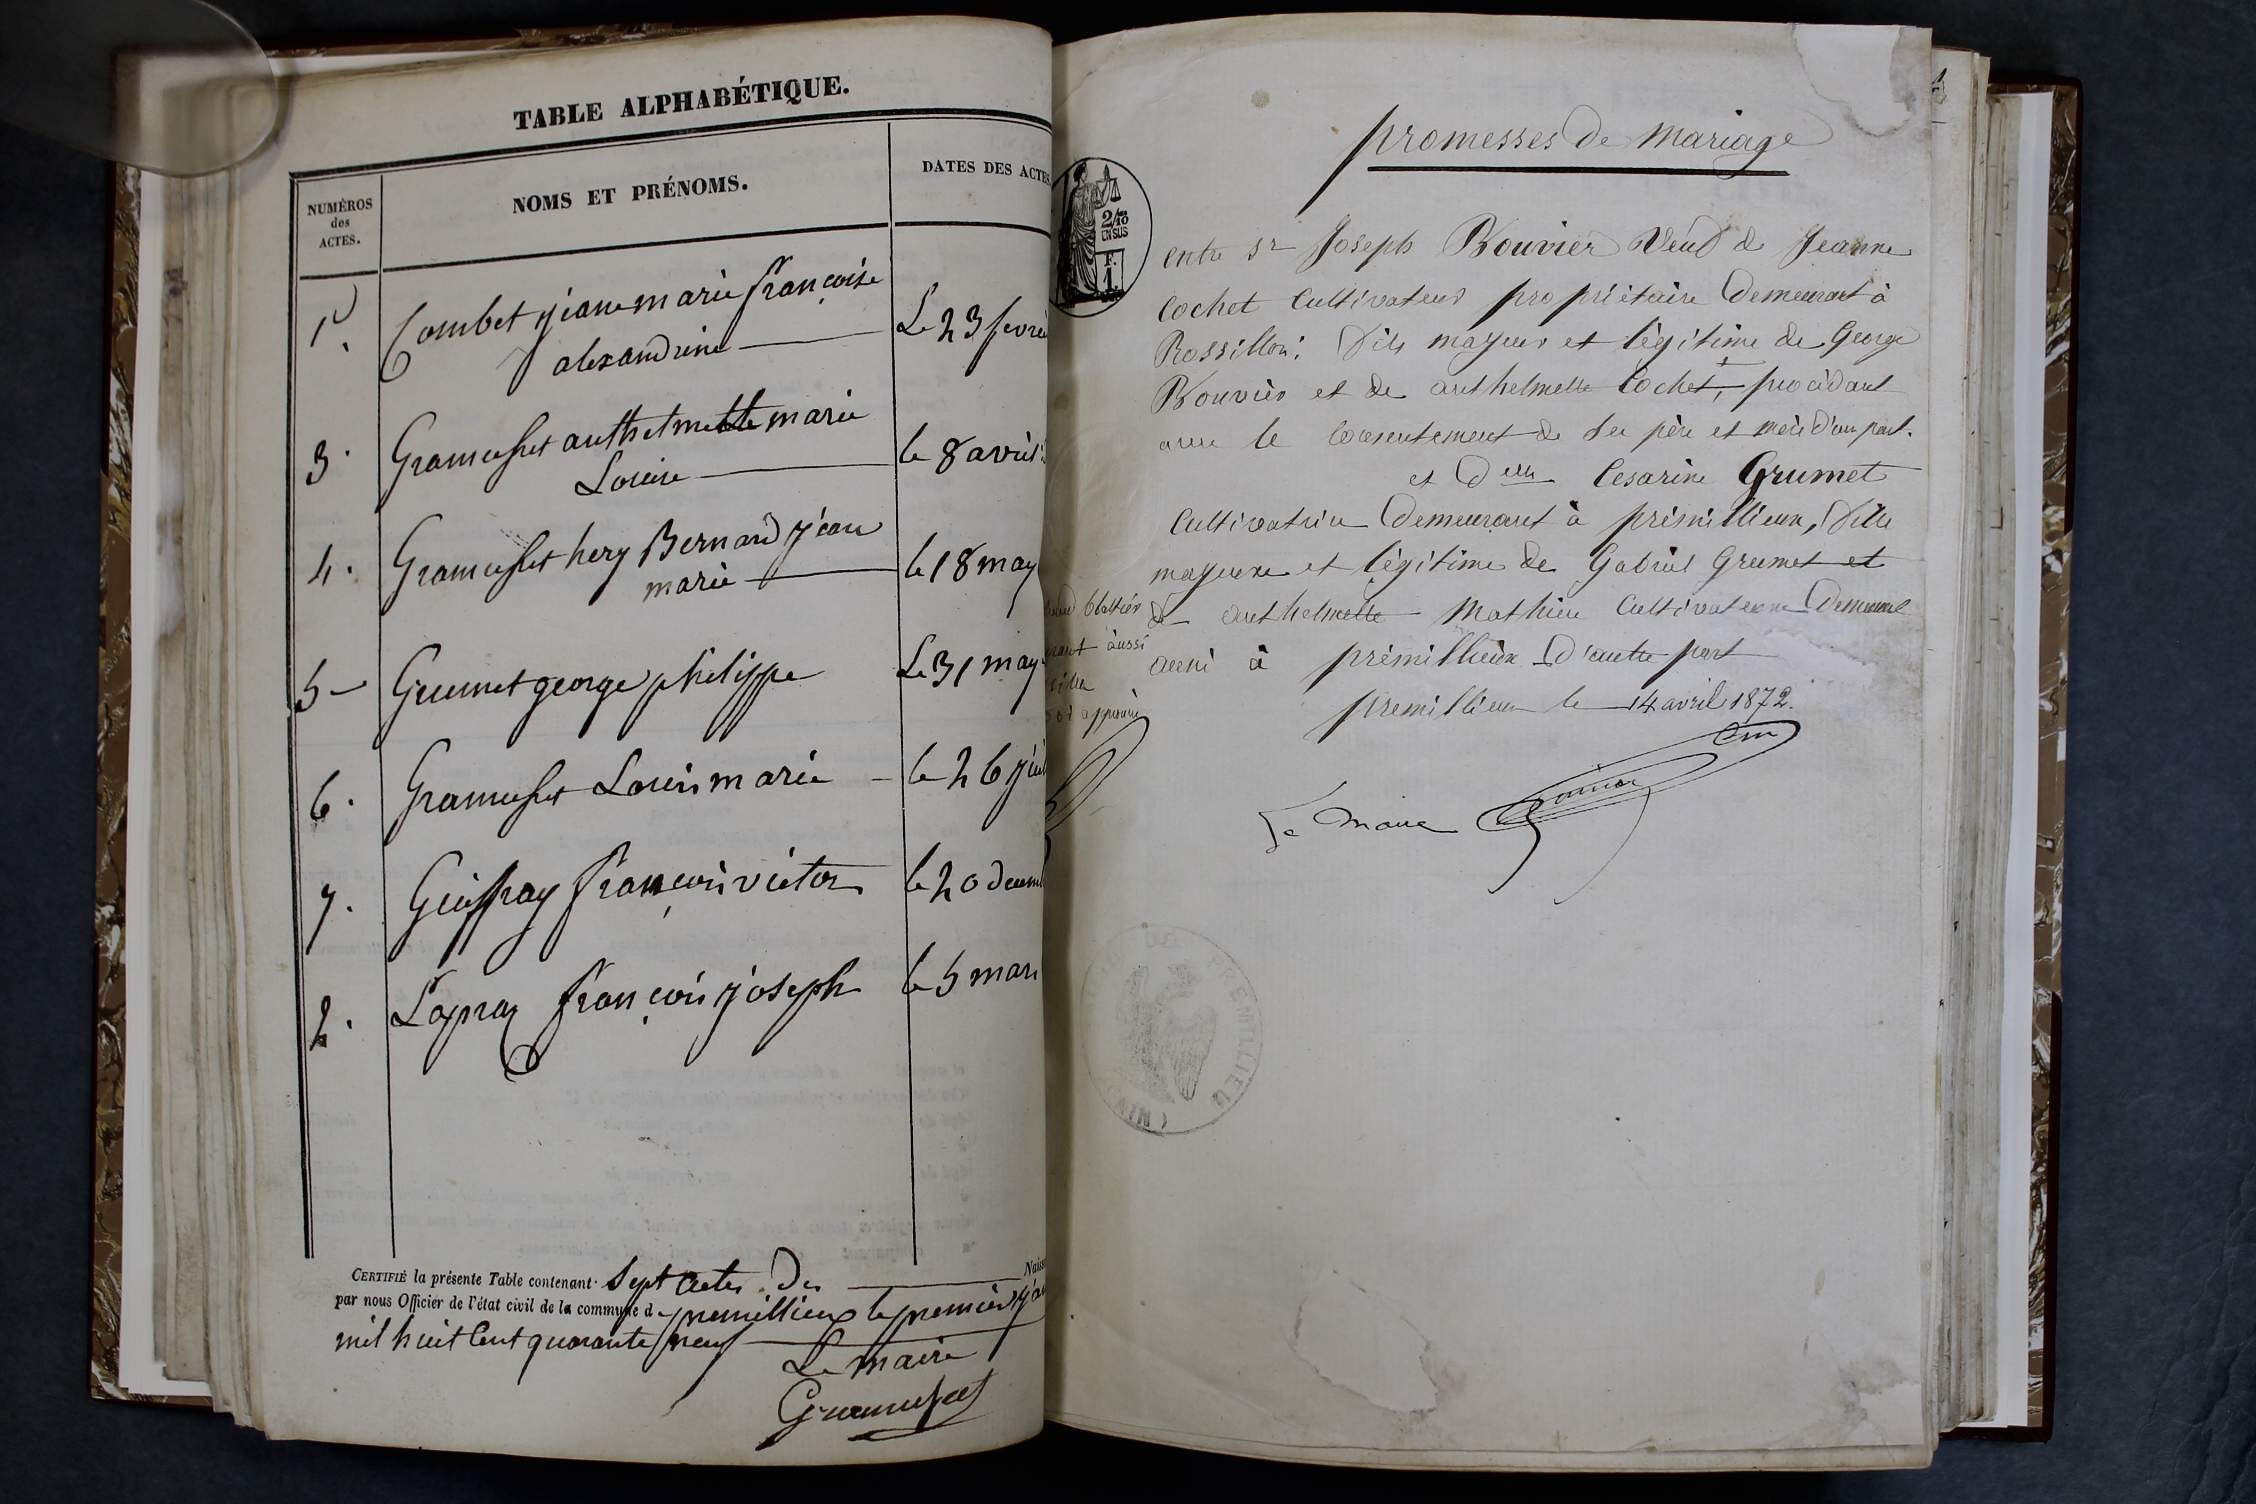 TABLE ALPHABÉTIQUE.
NUMÉROS
des
ACTES.
NOMS ET PRÉNOMS.
DATES DES ACTES
1
Combet jeane marie françoise
alexandrine
Le 23 fevrie
3.
Gramusset anthelmette marie
Louise
le 8 avril
4.
Gramusset hery Bernard jean
marie
le 18 may
5
Grumet george philippe
Le 31 may
6.
Gramusset Louis marie
le 26 juil
7.
Geoffray françois victor
le 20 decem
2.
Lapraz françois joseph
le 5 mars
CERTIFIÉ la présente Table contenant sept actes de Nais
par nous Officier de l'état civil de la commune de premillieux le premier jan
mil huit cent quarante neuf
Le maire
Gramusset
promesses de mariage
2/10
EN SUS
F.
1
entre Sr Joseph Bouvier Veuf de Jeanne
Cochet Cultivateur propriétaire demeurant à
Rossillon; fils mayeur et légitime de George
Bouvier et de anthelmette Cochet, procédant
avec le consentement de ses père et mère d'une part.
et Delle Cesarine Grumet
Cultivatrice demeurant à prémillieux, fille
mayeure et légitime de Gabriel Grumet et
de anthelmette Mathieu Cultivateurs demeurant
aussi à prémillieux d'autre part
premillieux le 14 avril 1872.
aussi
approuvé
Le Maire
PREMILLIEU
(AIN)